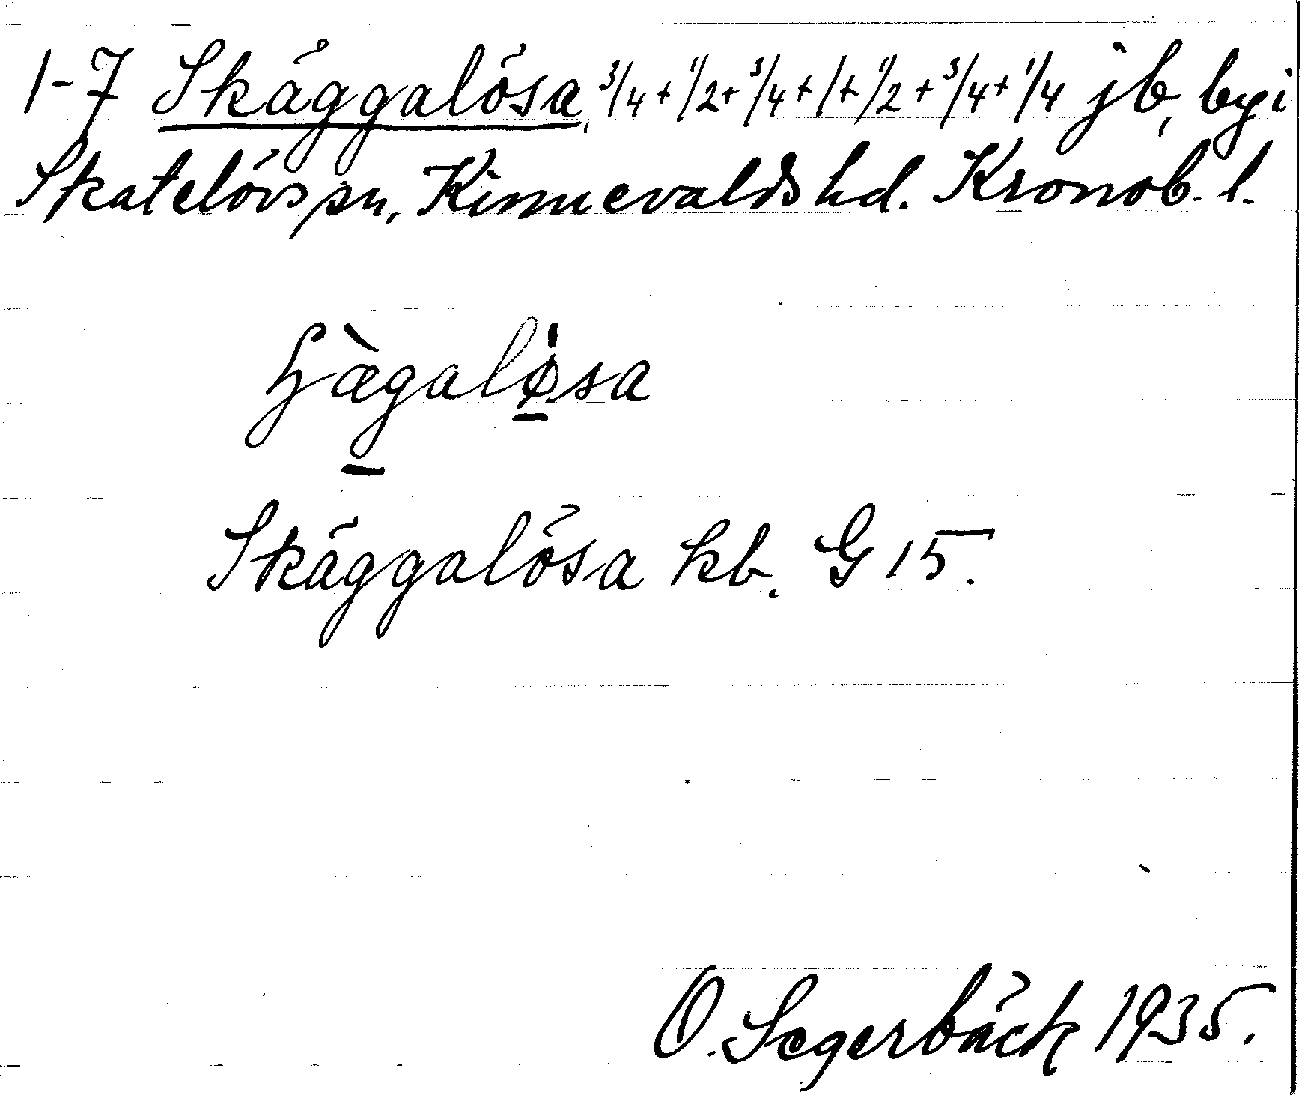 1-7 Skäggalösa, 3/4 + 1/2 + 3/4 + 1 + 1/2 + 3/4 + 1/4 jb, by i
Skatelövs sn, Kinnevalds hd. Kronob. l.
ɧæ̀galø̀sa
Skäggalösa kb. G 15.
O. Segerbäck 1935.